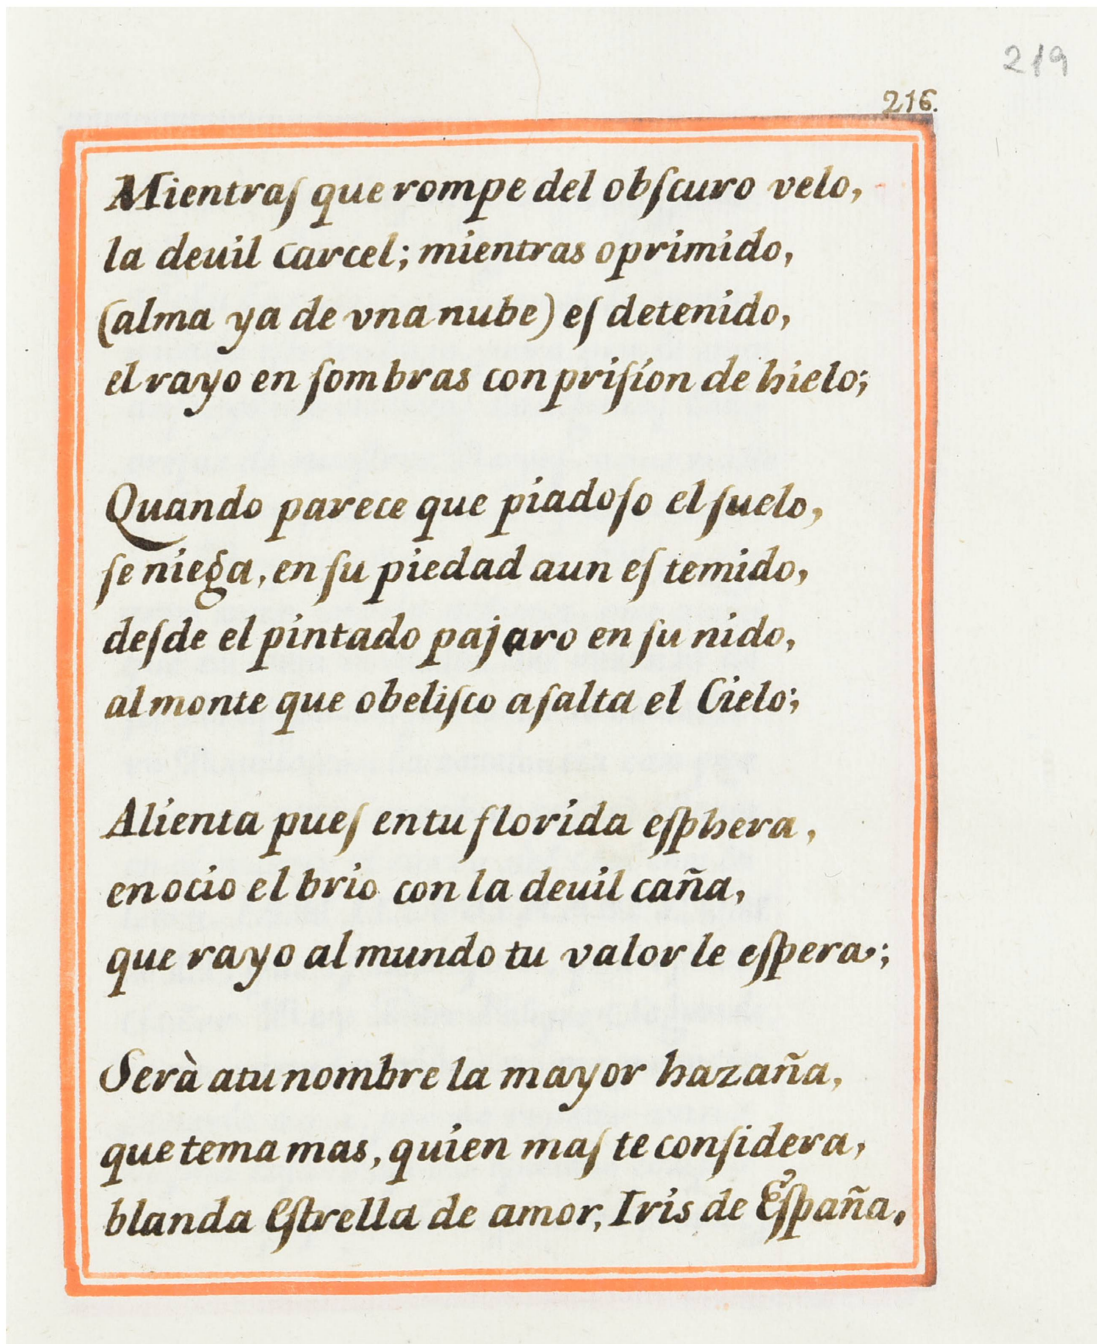 219
216.
Mientras que rompe del obscuro velo,
la deuil carcel; mientras oprimido,
(alma ya de vna nube) es detenido,
el rayo en sombras con prision de hielo;
Quando parece que piadoso el suelo,
se niega, en su piedad aun es temido,
desde el pintado pajaro en su nido,
al monte que obelisco asalta el Cielo;
Alienta pues en tu florida esphera,
en ocio el brio con la deuil caña,
que rayo al mundo tu valor le espera;
Serà a tu nombre la mayor hazaña,
que tema mas, quien mas te considera,
blanda Estrella de amor, Iris de España.